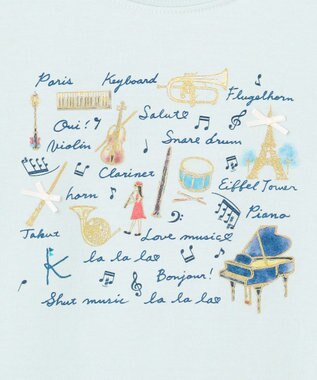 Paris Keyboard
Flugelhorn
Salut
Oui!
Violin Snare drum
Clarinet
Eiffel Tower
horn
Piano
Takut Love music
K la la la
Bonjour!
Shut music la la la